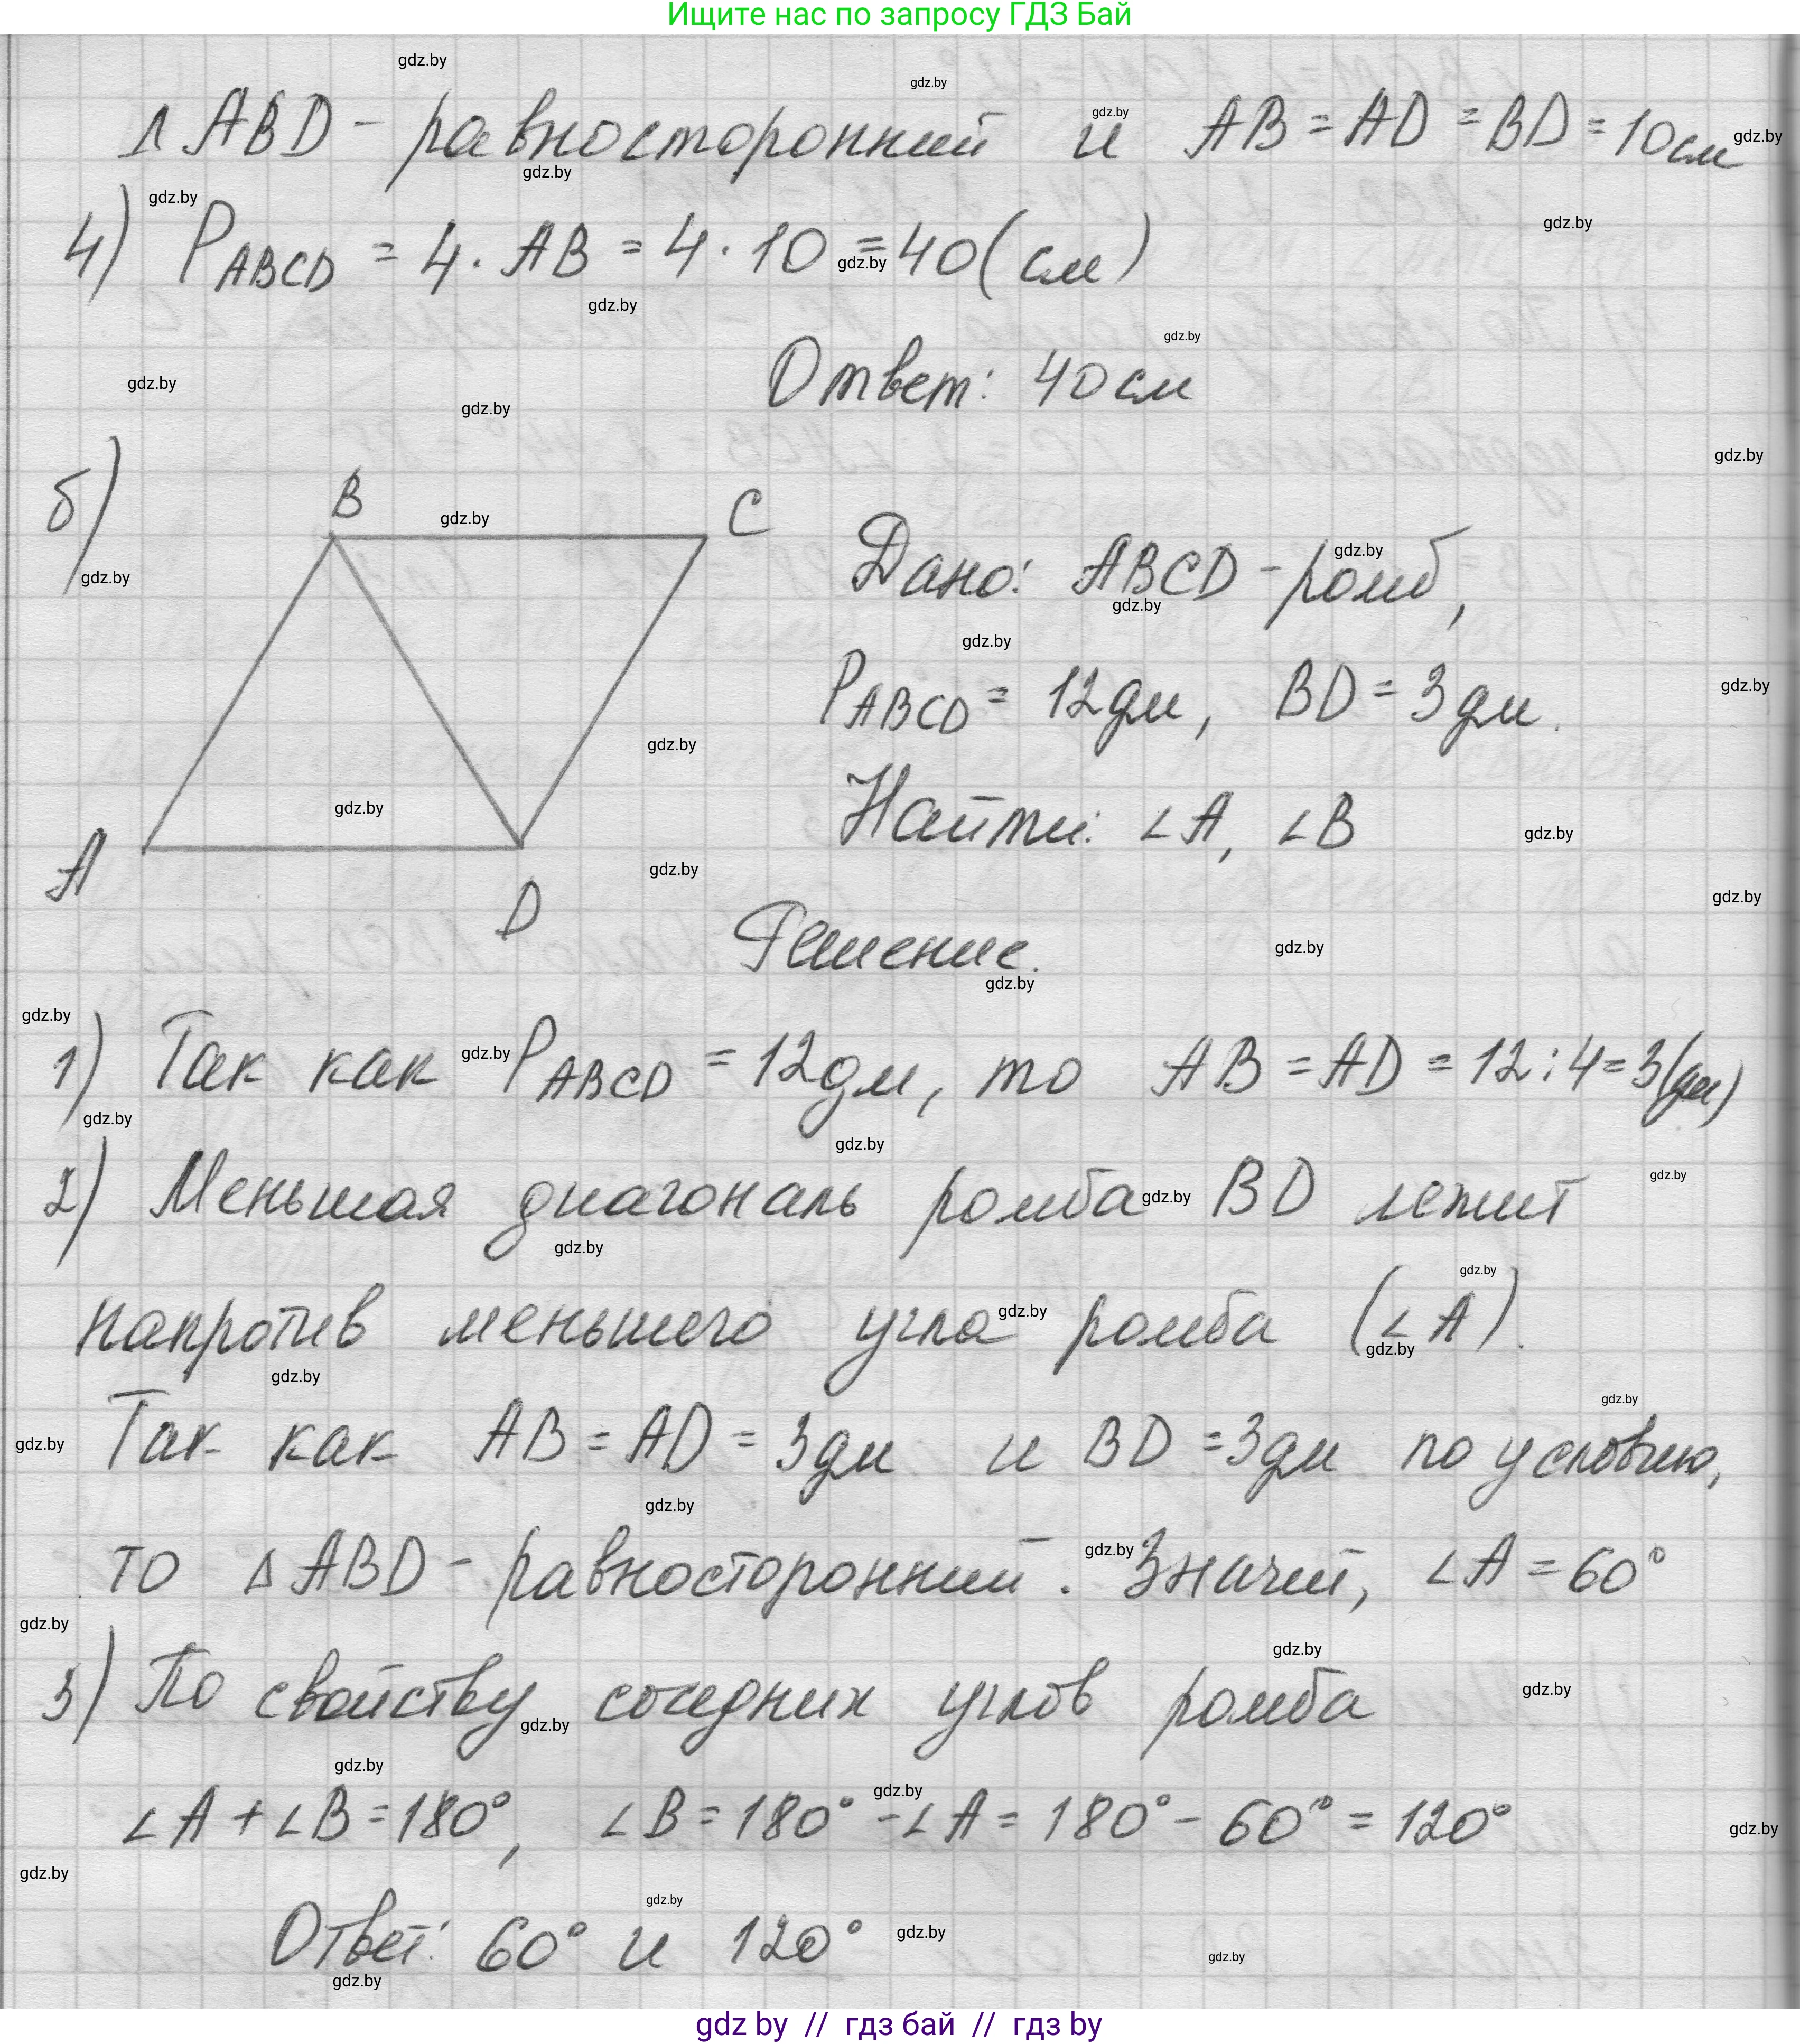 Ищите нас по запросу ГДЗ Бай
△ABD - равносторонний и AB = AD = BD = 10см
4) P ABCD = 4 · AB = 4 · 10 = 40 (см)
Ответ: 40 см
б)
B
C
A
D
Дано: ABCD - ромб,
P ABCD = 12 дм, BD = 3 дм.
Найти: ∠A, ∠B
Решение.
1) Так как P ABCD = 12 дм, то AB = AD = 12 : 4 = 3 (дм)
2) Меньшая диагональ ромба BD лежит
напротив меньшего угла ромба (∠A).
Так как AB = AD = 3 дм и BD = 3 дм по условию,
то △ABD - равносторонний. Значит, ∠A = 60°
3) По свойству соседних углов ромба
∠A + ∠B = 180°, ∠B = 180° - ∠A = 180° - 60° = 120°
Ответ: 60° и 120°
gdz by // гдз бай // гдз by